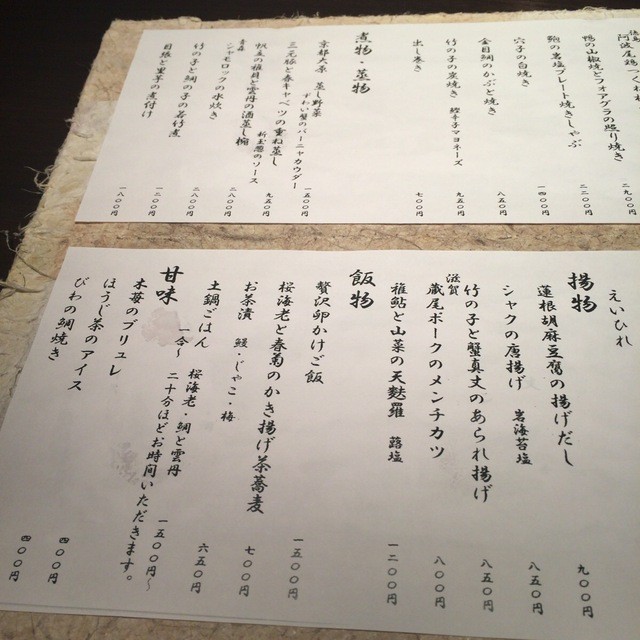 阿波尾鶏
二九〇〇円
鴨の山椒焼とフォアグラの照り焼き
二二〇〇円
鮑の岩塩プレート焼きしゃぶ
一四〇〇円
穴子の白焼き
八五〇円
金目鯛のかぶと焼き
竹の子の炭焼き 鰹辛子マヨネーズ
九五〇円
出し巻き
七〇〇円
煮物・蒸物
京都大原 蒸し野菜
ずわい蟹のバーニャカウダー
一五〇〇円
三元豚と春キャベツの重ね蒸し
新玉葱のソース
九五〇円
帆立の稚貝と雲丹の酒蒸し椀
二八〇〇円
青森
シャモロックの水炊き
二八〇〇円
竹の子と鯛の子の若竹煮
一二〇〇円
目張と里芋の煮付け
一八〇〇円
えいひれ
揚物
蓮根胡麻豆腐の揚げだし
九〇〇円
シャクの唐揚げ 岩海苔塩
八五〇円
竹の子と蟹真丈のあられ揚げ
八五〇円
滋賀
蔵尾ポークのメンチカツ
八〇〇円
稚鮎と山菜の天麩羅 蕗塩
一二〇〇円
飯物
贅沢卵かけご飯
一五〇〇円
桜海老と春菊のかき揚げ茶蕎麦
七〇〇円
お茶漬 鰻・じゃこ・梅
六五〇円
土鍋ごはん 桜海老・鯛と雲丹
一五〇〇円~
一合~ 二十分ほどお時間いただきます。
甘味
木苺のブリュレ
ほうじ茶のアイス
四〇〇円
びわの鯛焼き
四〇〇円